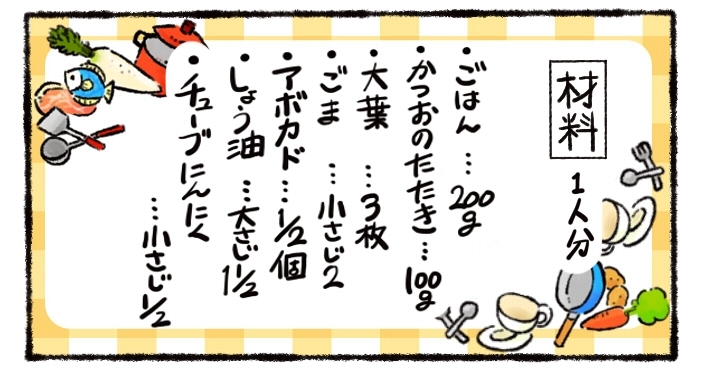 材料
1人分
・ごはん…200g
・かつおのたたき…100g
・大葉…3枚
・ごま…小さじ2
・アボカド…1/2個
・しょう油…大さじ1/2
・チューブにんにく
…小さじ1/2